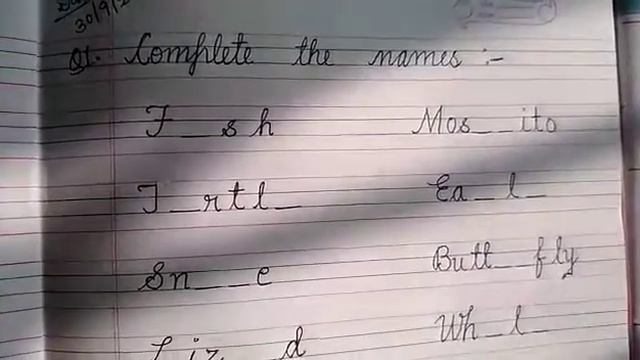 30/9/2
Q1. Complete the names :-
F_sh Mos__ito
T_rtl_ Ea_l_
Sn__e Butt_fly
Liz__d Wh_l_